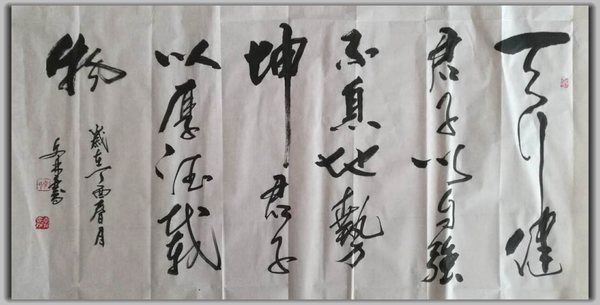 天行健
君子以自強
不息地勢
坤君子
以厚德載
物
歲在丁酉春月
書